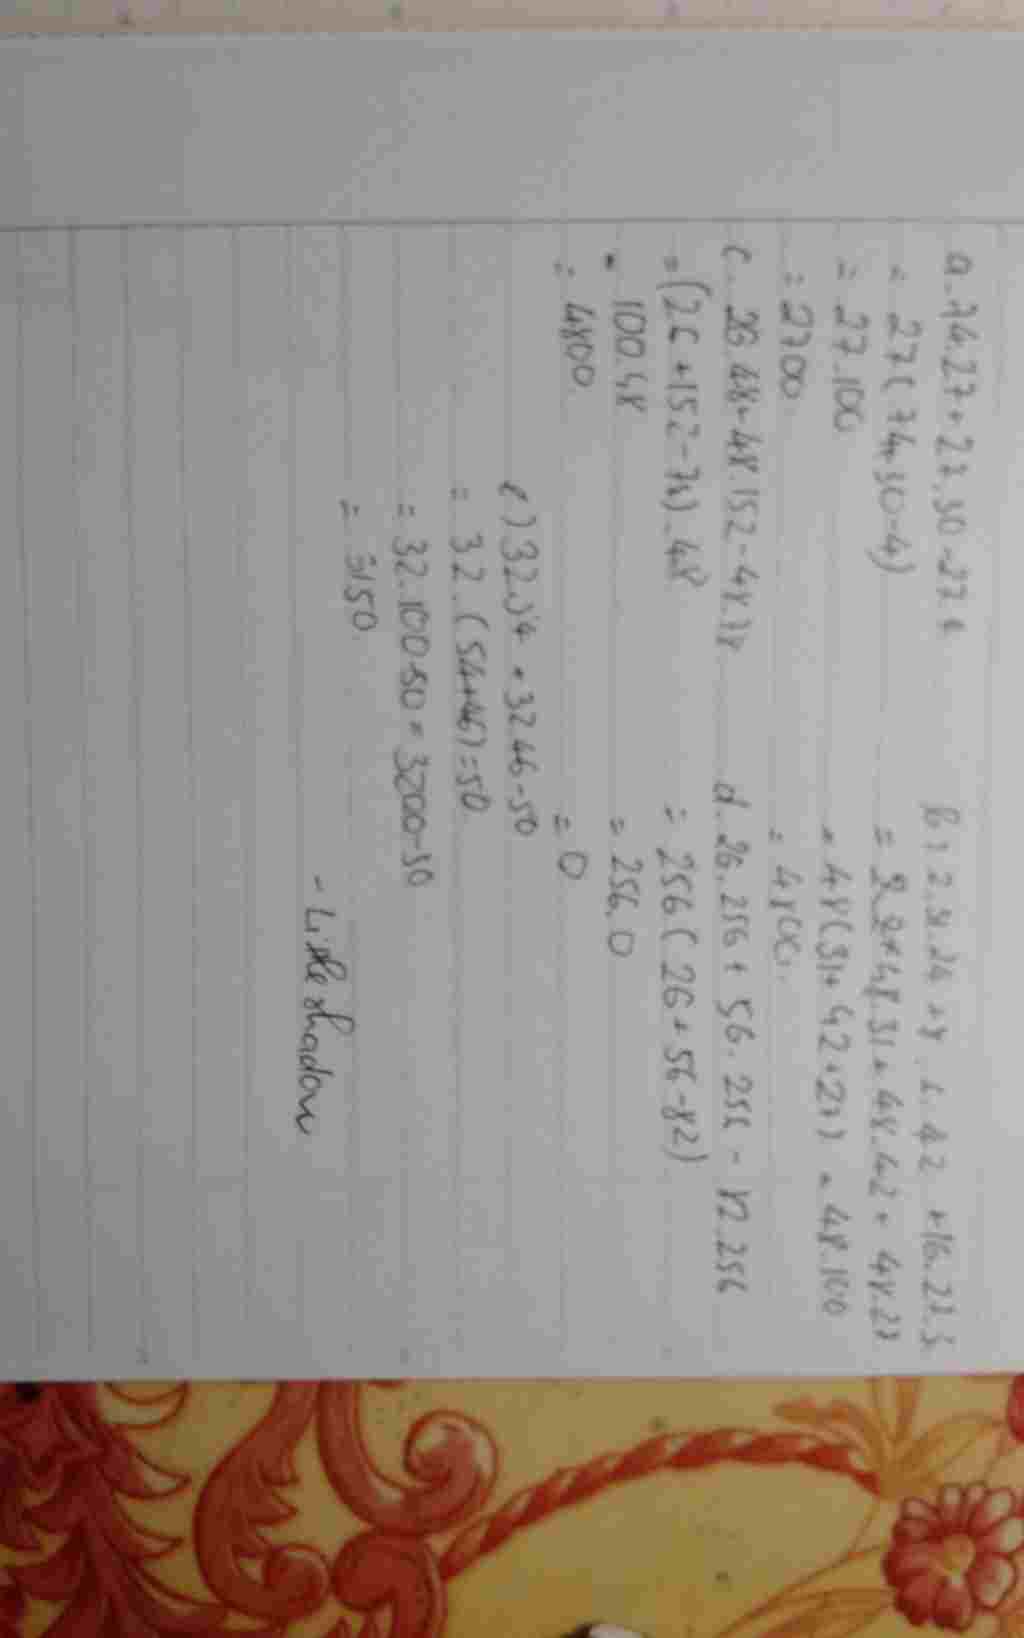 a. 74.27+27.30-27.4
= 27(74+30-4)
= 27.100
= 2700
b) 2.31.24 +8.6.42 +16.27.3
= 48.31+48.42+48.27
= 48(31+42+27) = 48.100
= 4800.
c. 26.48+48.152-48.78
=(26+152-78).48
= 100.48
= 4800
d. 26.256+56.256-82.256
= 256(26+56-82)
= 256.0
= 0
e) 32.54+32.46-50
= 32.(54+46)=50
= 32.100-50=3200-50
= 3150
- Little shadow